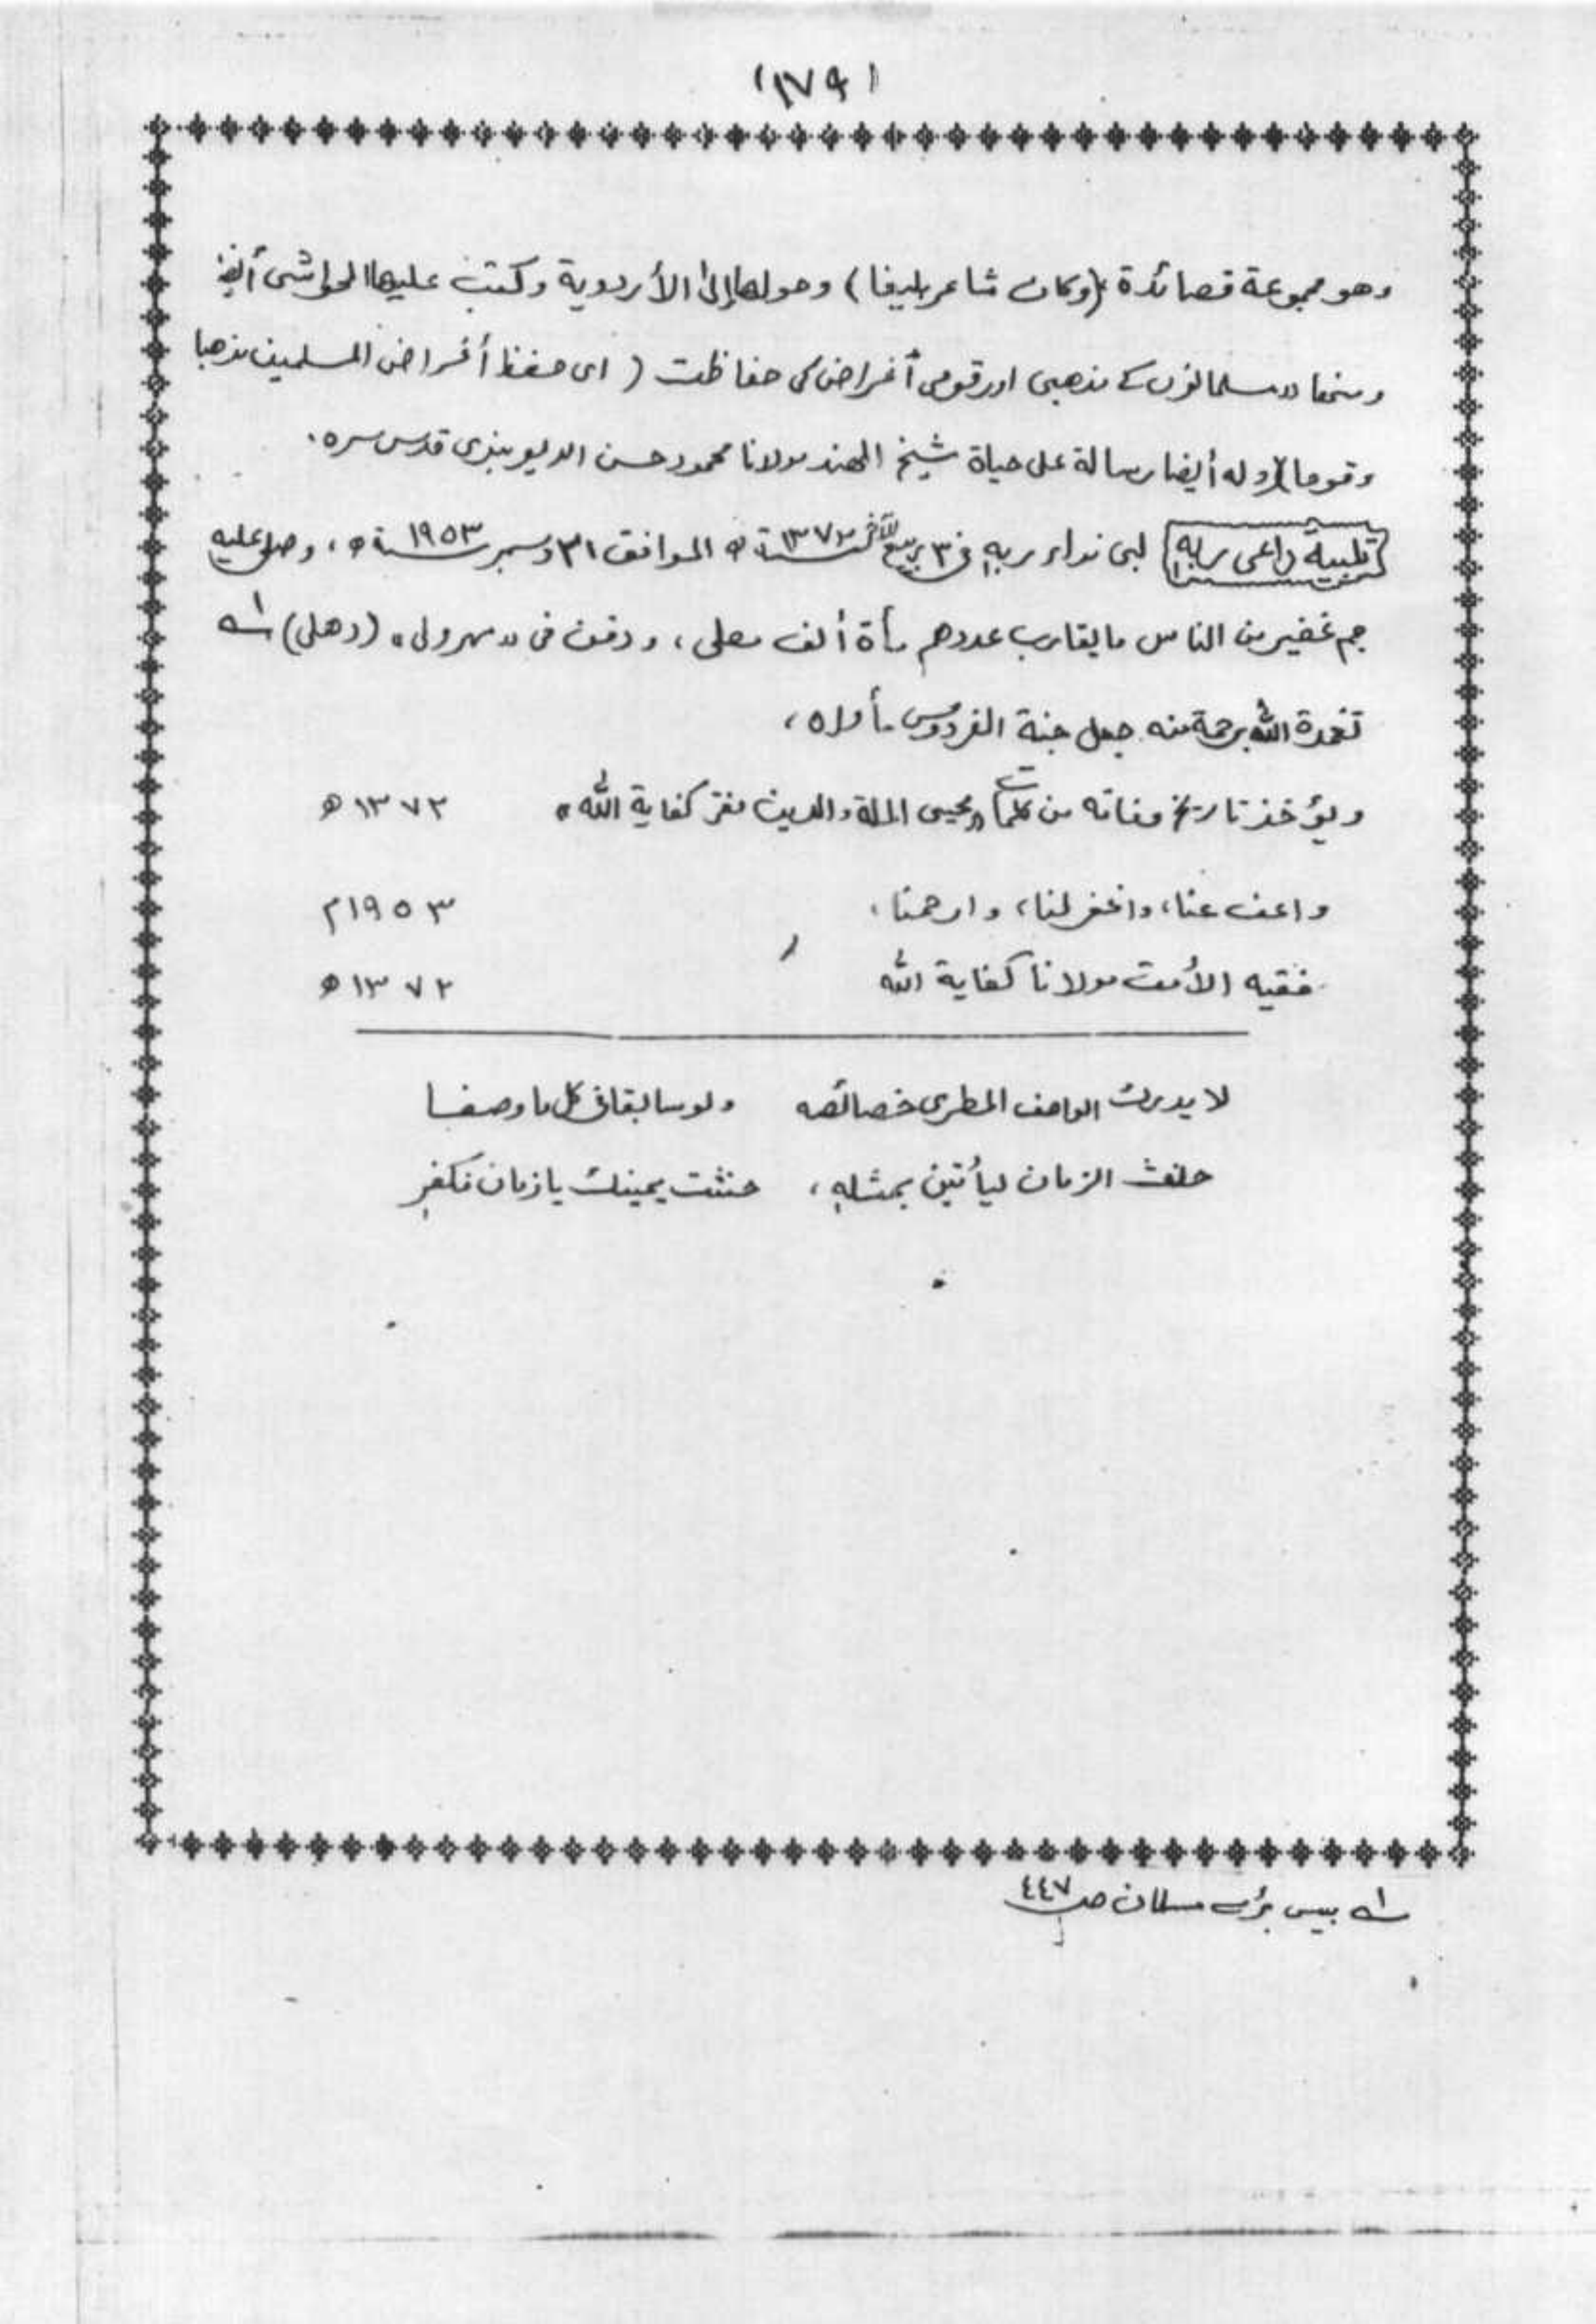 (١٧٩)
وهو مجموعة قصائدة (وكان شاعر بليغا) وحولها إلى الأردوية وكتب عليها الحواشى أيضا
ومنها "مسلمانوں کے مذهبی اور قومی أغراض کی حفاظت ( اى حفظ أغراض المسلمين مذهبا
وقوما) وله أيضا رسالة على حياة شيخ الهند مولانا محمود حسن الديوبندى قدس سره.
تلبية داعى ربه لبى نداء ربه فى ٣ ربيع الآخر سنة ١٣٧٢ ه الموافق ٣١ دسمبر سنة ١٩٥٣ ه، وصلى عليه
جم غفير من الناس ما يقارب عددهم مأة ألف مصلى، ودفن فى "مهرولى" (دهلى) ١ه
تغمدة الله برحمة منه جعل جنة الفردوس مأواه،
ويؤخذ تاريخ وفاته من كلمات "محيى الملة والدين مفتر كفاية الله" ١٣٧٢ ه
واعف عنا، واغفر لنا، وارحمنا، ١٩٥٣م
فقيه الأمت مولانا كفاية الله ١٣٧٢ ه
لا يدرك الواصف المطرى خصائصه ولو سابقا فى كل ما وصفا
حلف الزمان ليأتين بمثله، حنثت يمينك يا زمان فكفر
١ه بيس بڑے مسلمان صـ ٤٤٧